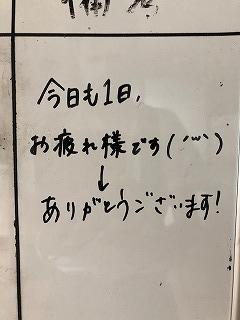 今日も1日,
お疲れ様です(´ω`)
↓
ありがとうございます!